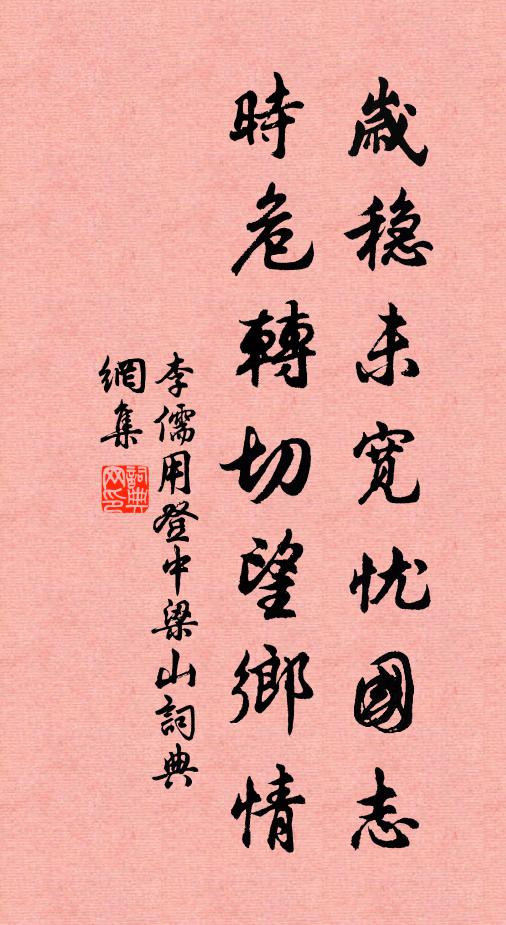 歲稳未宽忧國志
時危轉切望鄉情
李儒用登中梁山詞典
網集
詞典
网印